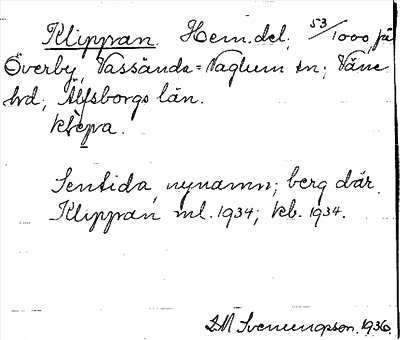 Klippan. Hem.del; 53/1000, på
Överby, Vassända=Naglum sn; Väne
hd; Älfsborgs län.
klèpa.
Sentida nynamn; berg där.
Klippan ml. 1934; kb. 1934.
D.M Svenungsson. 1936.